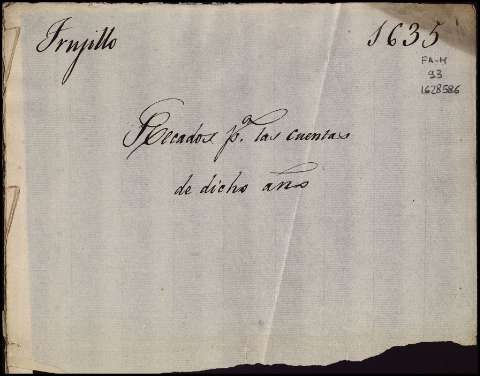 Trujillo 1635
FA-M
93
1628586
Recados pª. las cuentas
de dicho año